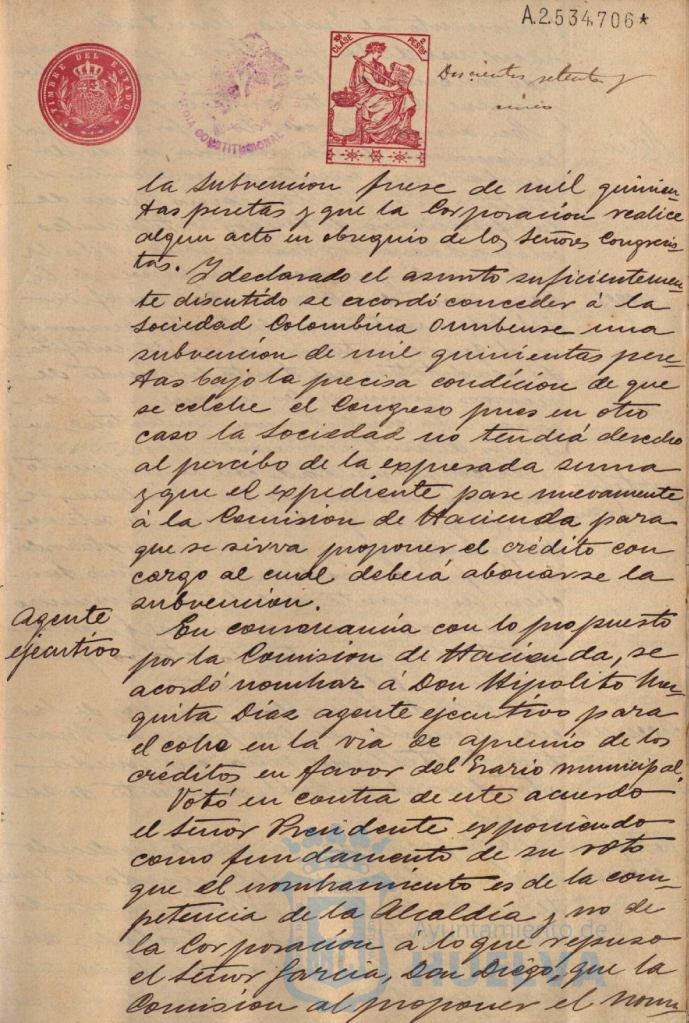 A.2.534.706*
TIMBRE DEL ESTADO
CONSTITUCIONAL
CLASE
PESETAS
Doscientos setenta y
cinco
la subvencion fuese de mil quinien
tas pesetas y que la Corporacion realice
algun acto en obsequio de los Señores Congresis
tas. Y declarado el asunto suficientemen
te discutido se acordó conceder á la
Sociedad Colombina Onubense una
subvencion de mil quinientas pese-
tas bajo la precisa condicion de que
se celebre el Congreso pues en otro
caso la Sociedad no tendrá derecho
al percibo de la expresada suma
y que el expediente pase nuevamente
á la Comision de Hacienda para
que se sirva proponer el crédito con
cargo al cual deberá abonarse la
subvencion.
Agente
ejecutivo
En consonancia con lo propuesto
por la Comision de Hacienda, se
acordó nombrar á Don Hipolito
Diaz agente ejecutivo para
el cobro en la via de apremio de los
créditos en favor del Erario municipal.
Votó en contra de este acuerdo
el Señor Presidente exponiendo
como fundamento de su voto
que el nombramiento es de la com-
petencia de la Alcaldía y no de
la Corporacion á lo que repuso
el Señor Garcia, Don Diego, que la
Comision al proponer el nom
Ayuntamiento de
HUELVA